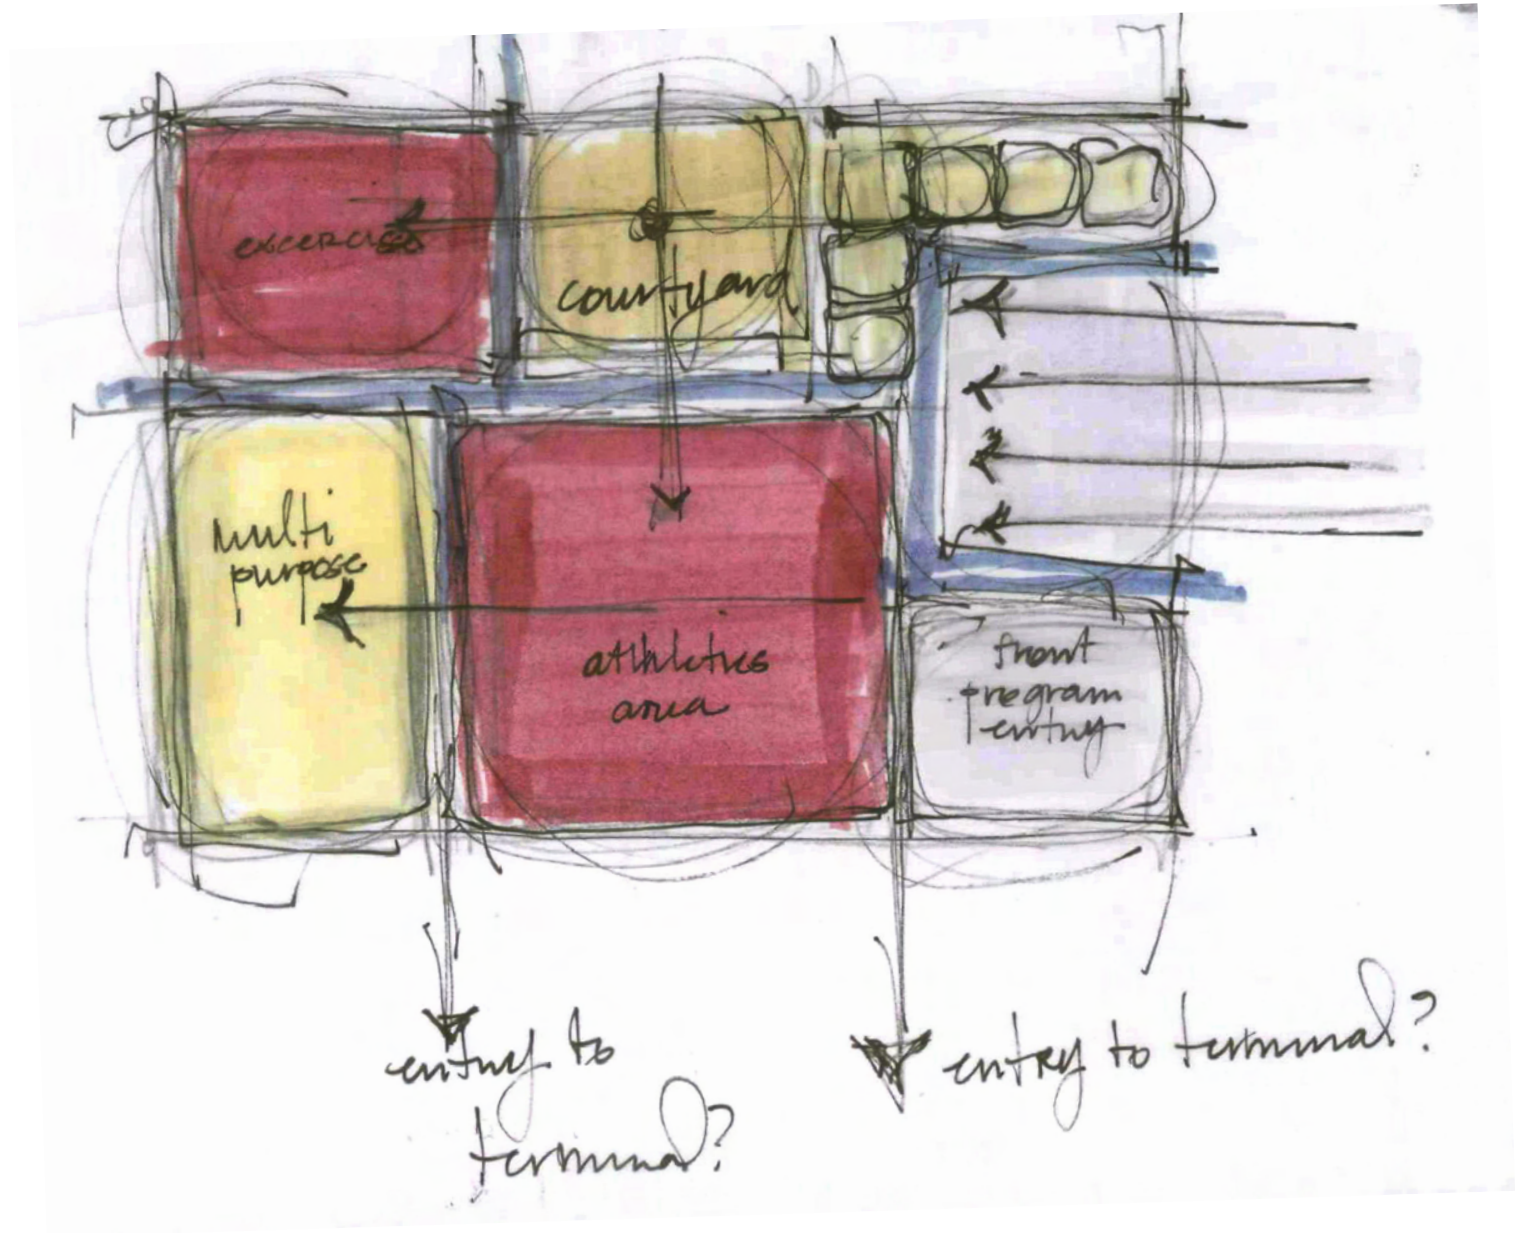 excercise
courtyard
multi
purpose
athletics
area
front
program
entry
entry to
terminal?
entry to terminal?